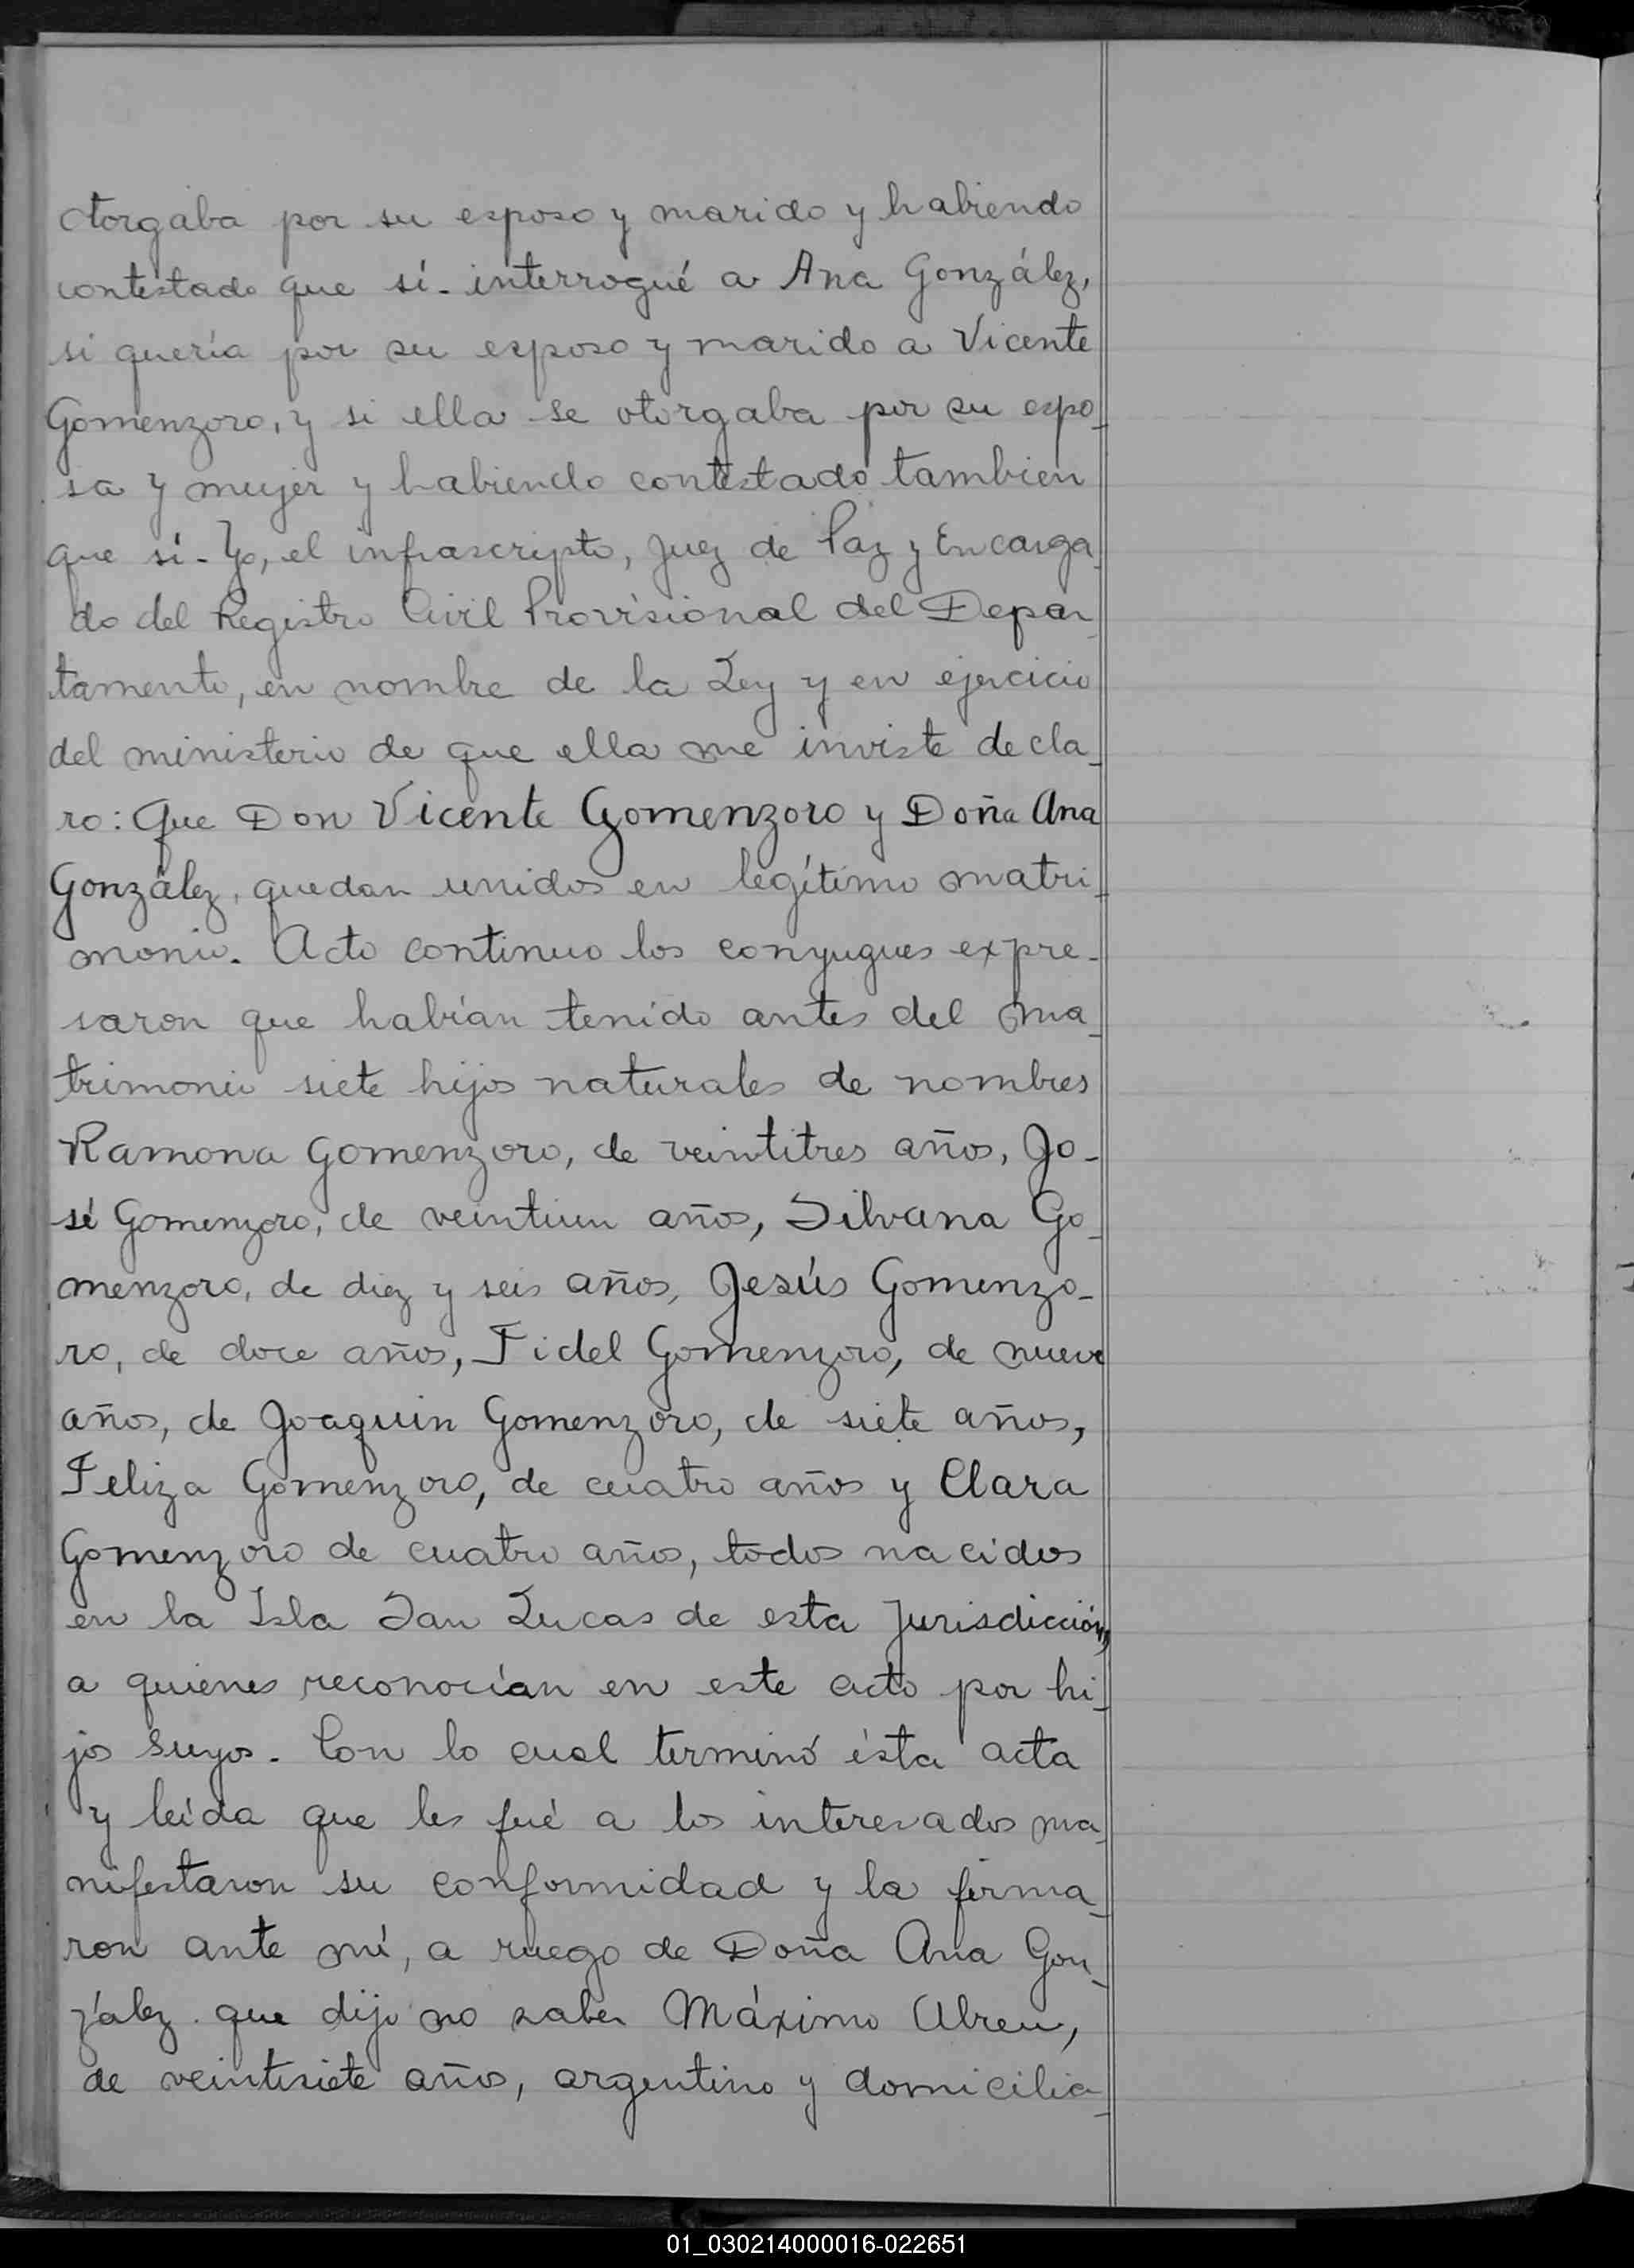 otorgaba por su esposo y marido y habiendo
contestado que sí - interrogué a Ana González,
si quería por su esposo y marido a Vicente
Gomenzoro, y si ella se otorgaba por su espo_
sa y mujer y habiendo contestado tambien
que sí - Yo, el infrascripto, Juez de Paz y Encarga_
do del Registro Civil Provisional del Depar_
tamento, en nombre de la Ley y en ejercicio
del ministerio de que ella me inviste decla_
ro: Que Don Vicente Gomenzoro y Doña Ana
González, quedan unidos en legítimo matri_
monio. Acto continuo los conyugues expre-
saron que habían tenido antes del ma_
trimonio siete hijos naturales de nombres
Ramona Gomenzoro, de veintitres años, Jo-
sé Gomenzoro, de veintiun años, Silvana Go_
menzoro, de diez y seis años, Jesús Gomenzo-
ro, de doce años, Fidel Gomenzoro, de nueve
años, de Joaquin Gomenzoro, de siete años,
Feliza Gomenzoro, de cuatro años y Clara
Gomenzoro de cuatro años, todos nacidos
en la Isla San Lucas de esta Jurisdicción,
a quienes reconocían en este acto por hi_
jos suyos. Con lo cual terminó ésta acta
y leída que les fué a los interesados ma_
nifestaron su conformidad y la firma_
ron ante mí, a ruego de Doña Ana Gon_
zález que dijo no saber Máximo Abreu,
de veintisiete años, argentino y domicilia_
01_030214000016-022651